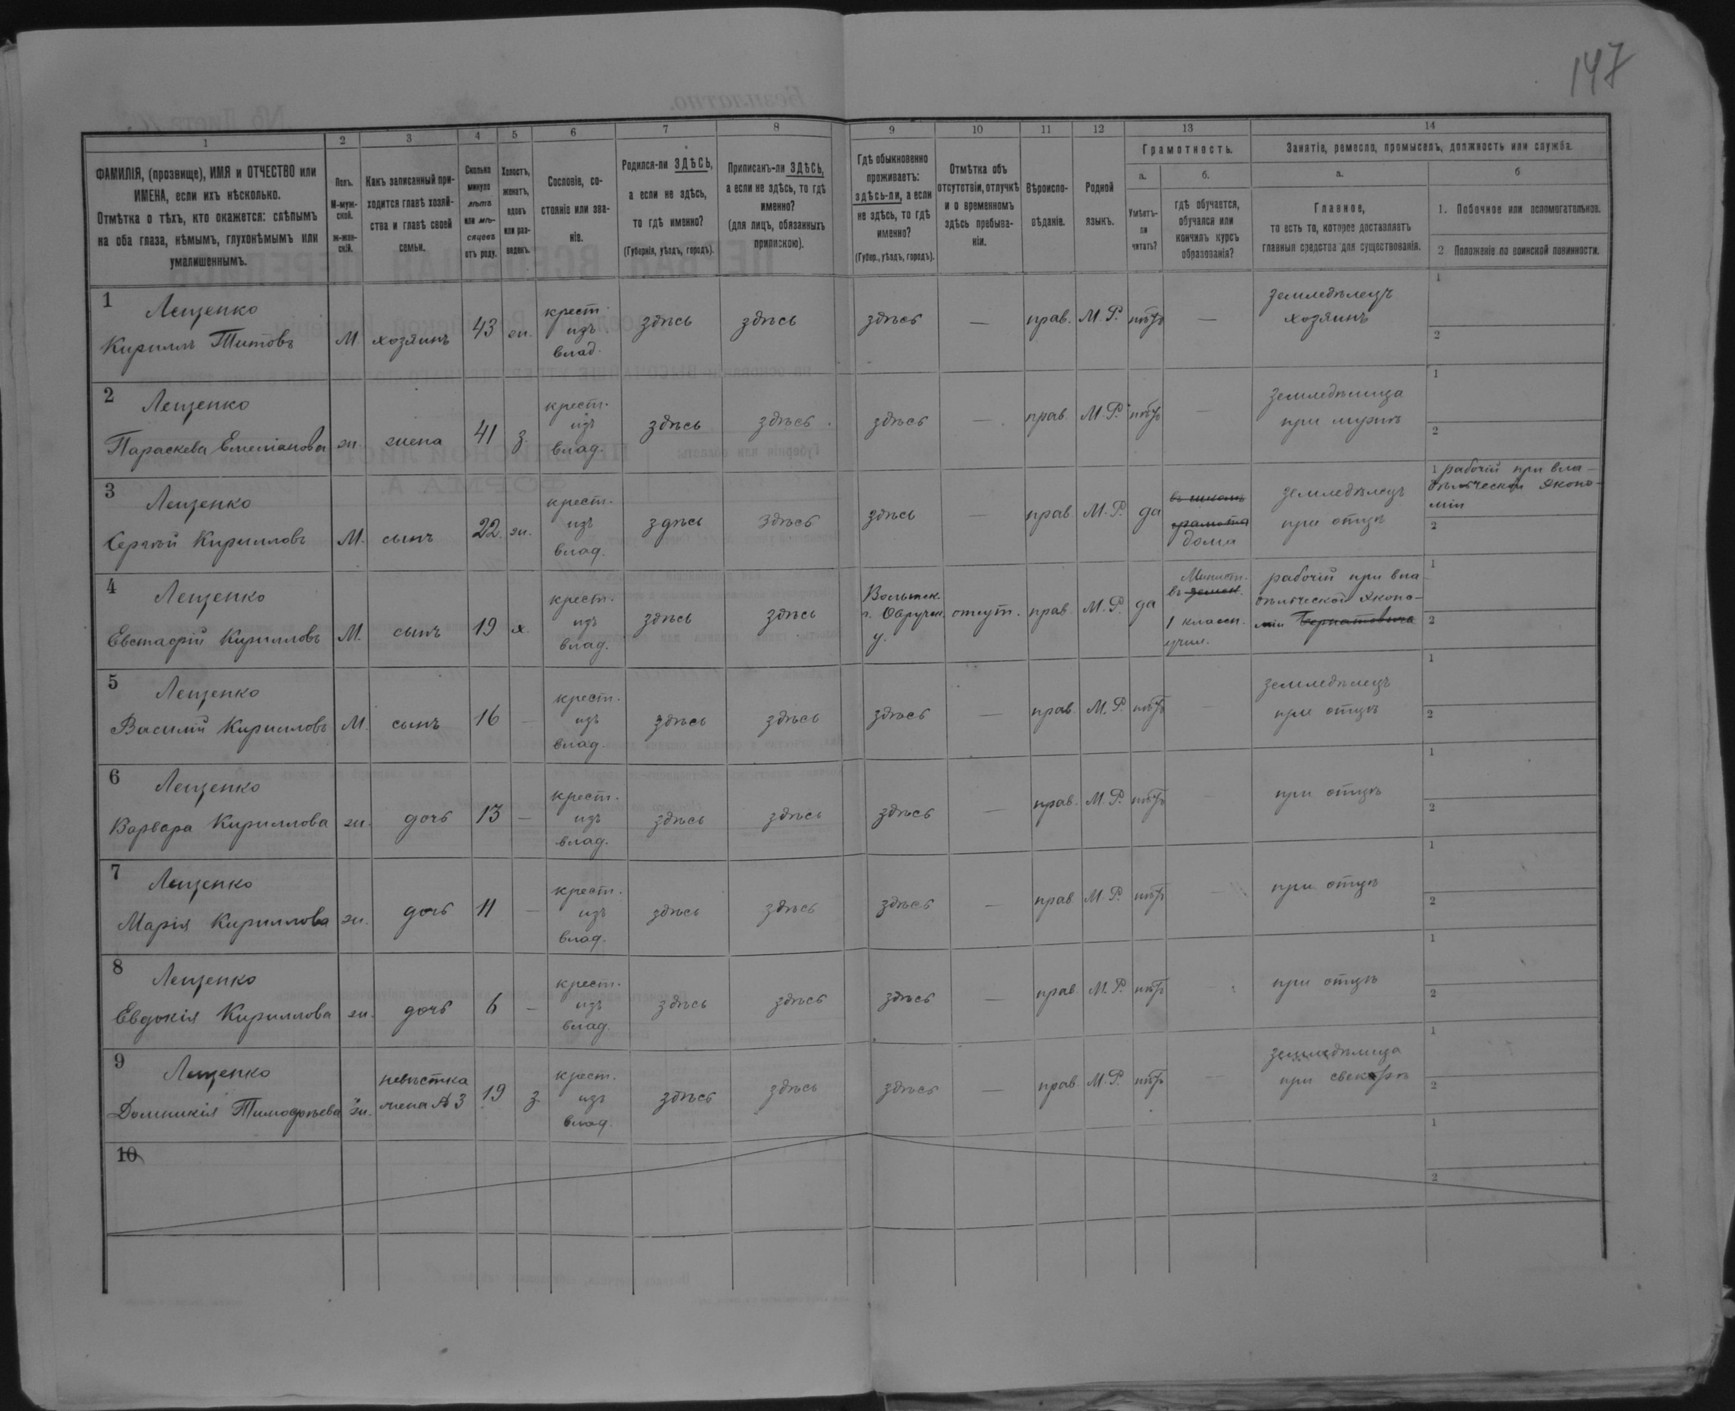 147
1 2 3 4 5 6 7 8 9 10 11 12 13 14
ФАМИЛІЯ, (прозвище), ИМЯ и ОТЧЕСТВО или
ИМЕНА, если ихъ нѣсколько.
Отмѣтка о тѣхъ, кто окажется: слѣпымъ
на оба глаза, нѣмымъ, глухонѣмымъ или
умалишеннымъ.
Полъ.
М-муж-
ской.
ж-жен-
скій.
Какъ записанный при-
ходится главѣ хозяй-
ства и главѣ своей
семьи.
Сколько
минуло
лѣтъ
или мѣ-
сяцевъ
отъ роду.
Холостъ,
женатъ,
вдовъ
или раз-
веденъ.
Сословіе, со-
стояніе или зва-
ніе.
Родился-ли ЗДѢСЬ,
а если не здѣсь,
то гдѣ именно?
(Губернія, уѣздъ, городъ).
Приписанъ-ли ЗДѢСЬ,
а если не здѣсь, то гдѣ
именно?
(для лицъ, обязанныхъ
припискою).
Гдѣ обыкновенно
проживаетъ:
здѣсь-ли, а если
не здѣсь, то гдѣ
именно?
(Губер., уѣздъ, городъ).
Отмѣтка объ
отсутствіи, отлучкѣ
и о временномъ
здѣсь пребыва-
ніи.
Вѣроиспо-
вѣданіе.
Родной
языкъ.
Грамотность.
а.
Умѣетъ-
ли
читать?
б.
гдѣ обучается,
обучался или
кончилъ курсъ
образованія?
Занятіе, ремесло, промыселъ, должность или служба.
а.
Главное,
то есть то, которое доставляетъ
главныя средства для существованія.
б
1. Побочное или вспомогательное.
2 Положеніе по воинской повинности.
1 Лещенко
Кириллъ Титовъ М. хозяинъ 43 ж. крест. изъ влад. здѣсь здѣсь здѣсь — прав. М.Р. нѣтъ — земледѣлецъ
хозяинъ
1
2
2 Лещенко
Параскева Емельянова ж. жена 41 з. крест. изъ влад. здѣсь здѣсь здѣсь — прав. М.Р. нѣтъ — земледѣлица
при мужѣ
1
2
3 Лещенко
Сергѣй Кирилловъ М. сынъ 22. ж. крест. изъ влад. здѣсь здѣсь здѣсь — прав М.Р. да
дома
земледѣлецъ
при отцѣ
1 рабочій при вла-
дѣльческой эконо-
міи
2
4 Лещенко
Евстафій Кирилловъ М. сынъ 19 х. крест. изъ влад. здѣсь здѣсь
Волынск.
г. Овручск.
у.
отсут. прав. М.Р. да
Минист.
1 классн.
учил.
рабочій при вла-
дѣльческой эконо-
міи
1
2
5 Лещенко
Василій Кирилловъ М. сынъ 16 — крест. изъ влад. здѣсь здѣсь здѣсь — прав. М.Р. нѣтъ — земледѣлецъ
при отцѣ
1
2
6 Лещенко
Варвара Кириллова ж. дочь 13 — крест. изъ влад. здѣсь здѣсь здѣсь — прав. М.Р. нѣтъ — при отцѣ
1
2
7 Лещенко
Марія Кириллова ж. дочь 11 — крест. изъ влад. здѣсь здѣсь здѣсь — прав М.Р. нѣтъ — при отцѣ
1
2
8 Лещенко
Евдокія Кириллова ж. дочь 6 — крест. изъ влад. здѣсь здѣсь здѣсь — прав. М.Р. нѣтъ — при отцѣ
1
2
9 Лещенко
Домникія Тимофѣева ж. невѣстка
жена № 3 19 з. крест. изъ влад. здѣсь здѣсь здѣсь — прав М.Р. нѣтъ — земледѣлица
при свекрѣ
1
2
10
1
2